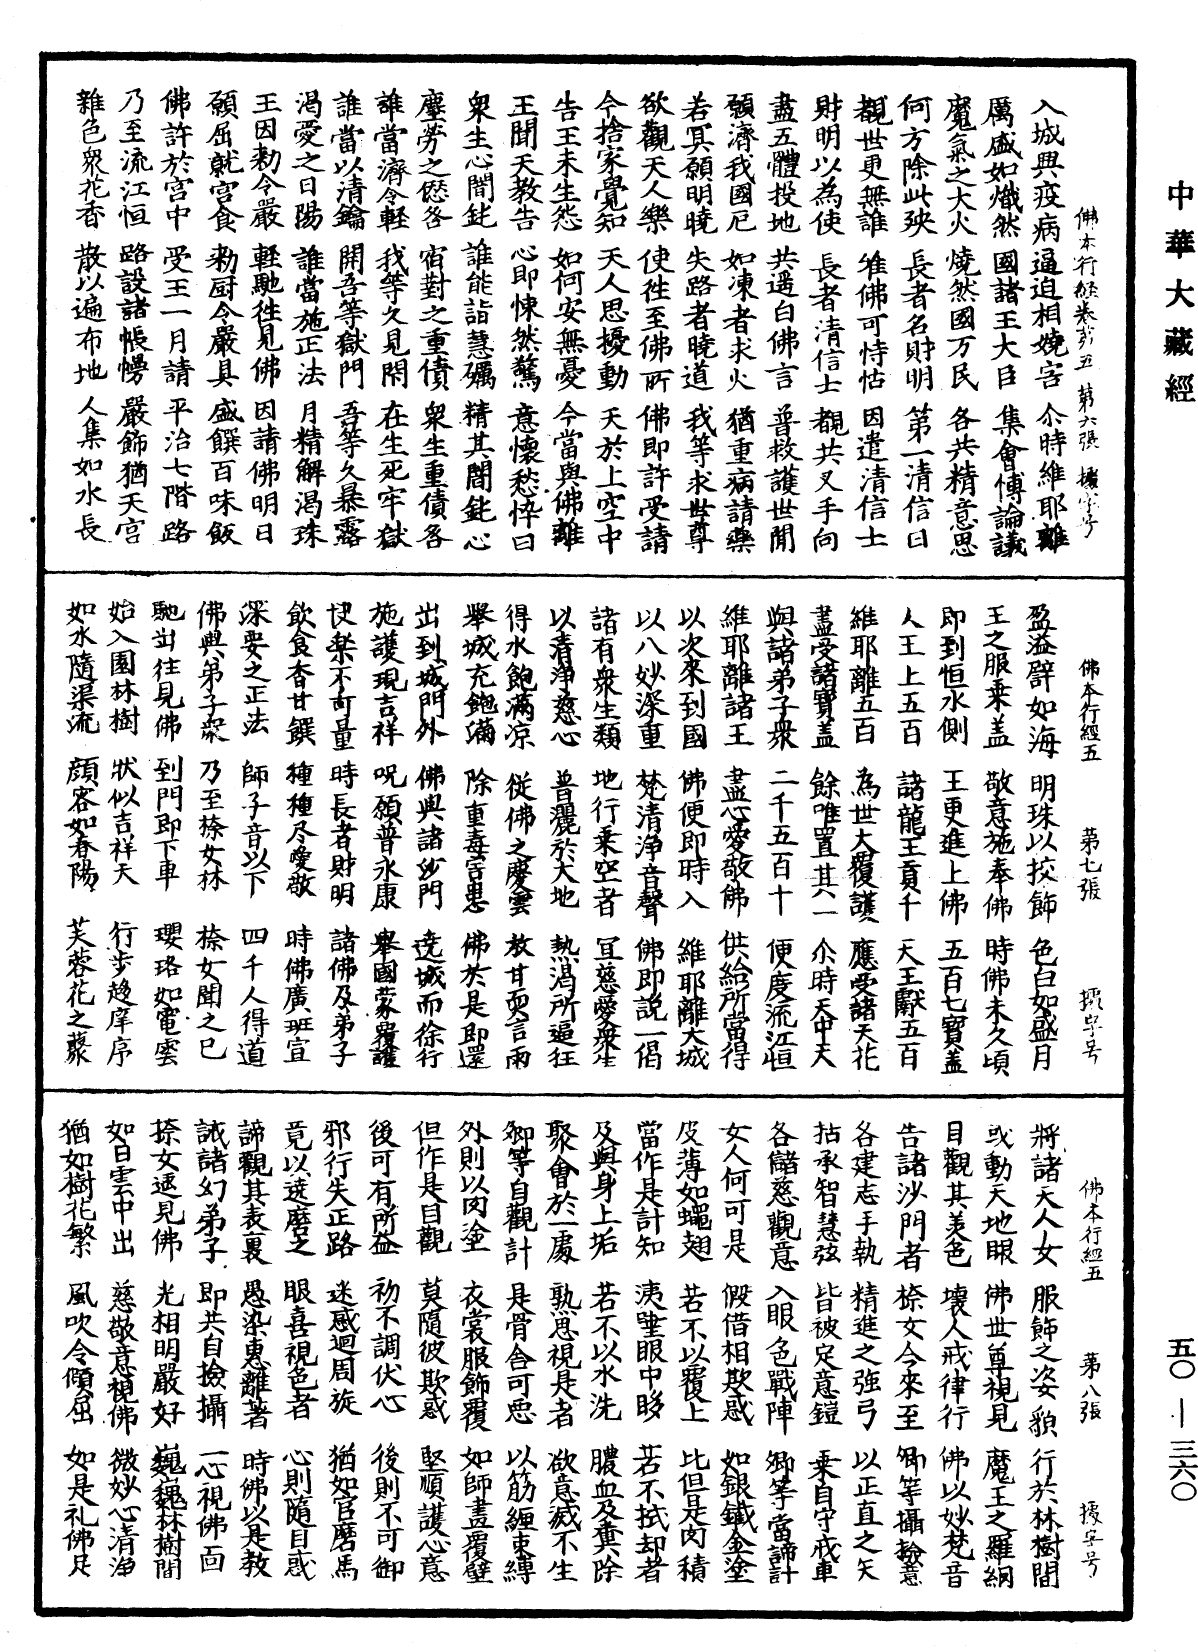 中華大藏經
佛本行經卷第五 第六張 據字号
入城興疫病 逼迫相嬈害 尒時維耶離
厲盛如熾然 國諸王大臣 集會博論議
魔氣之大火 燒然國万民 各共精意思
何方除此殃 長者名財明 第一清信曰
觀世更無誰 唯佛可恃怙 因遣清信士
財明以為使 長者清信士 覩共叉手向
盡五體投地 共遥白佛言 普救護世間
願濟我國厄 如凍者求火 猶重病請藥
若冥願明曉 失路者曉道 我等求世尊
欲觀天人樂 使徃至佛所 佛即許受請
今捨家覺知 天人思擾動 天於上空中
告王未生怨 如何安無憂 今當與佛離
王聞天教告 心即悚然驚 意懷愁忰曰
衆生心闇鈍 誰能詣慧礪 精其闇鈍心
塵勞之僽咎 宿對之重債 衆生重債各
誰當濟令輕 我等久見閇 在生死牢獄
誰當以清鑰 開吾等獄門 吾等久暴露
渴愛之日陽 誰當施正法 月精解渴珠
王因勑令嚴 輕馳徃見佛 因請佛明日
願屈就宮食 勑厨令嚴具 盛饌百味飯
佛許於宮中 受王一月請 平治七階路
乃至流江恒 路設諸帳幔 嚴飾猶天宮
雜色衆花香 散以遍布地 人集如水長
佛本行經五 第七張 據字号
盈溢辟如海 明珠以挍飾 色白如盛月
王之服乘盖 敬意施奉佛 時佛未久頃
即到恒水側 王更進上佛 五百七寶盖
人王上五百 諸龍王貢千 天王獻五百
維耶離五百 為世大覆護 應受諸天花
盡受諸寶盖 餘唯置其一 尒時天中天
與諸弟子衆 二千五百十 便度流江恒
維耶離諸王 盡心愛敬佛 供給所當得
以次來到國 佛便即時入 維耶離大城
以八妙深重 梵清淨音聲 佛即説一偈
諸有衆生類 地行乘空者 宜慈愛衆生
以清淨慈心 普灑於大地 熱渴所逼狂
得水飽滿凉 從佛之慶雲 放甘耎言雨
舉城充飽滿 除重毒害患 佛於是即還
出到城門外 佛與諸沙門 遶城而徐行
施護現吉祥 呪願普永康 舉國蒙覆護
快樂不可量 時長者財明 諸佛及弟子
飲食香甘饌 種種尽愛敬 時佛廣班宣
深要之正法 師子音以下 四千人得道
佛與弟子衆 乃至㮈女林 㮈女聞之已
馳出往見佛 到門即下車 瓔珞如電雲
始入園林樹 狀似吉祥天 行步趍庠序
如水隨渠流 顔容如春陽 芙蓉花之蘂
佛本行經五 第八張 據字号
將諸天人女 服飾之姿貌 行於林樹間
或動天地眼 佛世尊視見 魔王之羅網
目觀其美色 壞人戒律行 佛以妙梵音
告諸沙門者 㮈女今來至 卿等攝撿意
各建志手執 精進之強弓 以正直之矢
拈承智慧弦 皆被定意鎧 乘自守戒車
各儲慈觀意 入眼色戰陣 卿等當諦計
女人何可是 假借相欺惑 如銀鐵金塗
皮薄如蠅翅 若不以覆上 比但是肉積
當作是計知 洟唾眼中眵 若不拭却者
及與身上垢 若不以水洗 膿血及糞除
聚會於一處 熟思視是者 欲意滅不生
卿等自觀計 是骨舍可惡 以筋纏束縛
外則以肉塗 衣裳服飾覆 如師畫覆壁
但作是目觀 莫隨彼欺惑 堅順護心意
後可有所益 初不調伏心 後則不可御
邪行失正路 迷惑迴周旋 猶如官磨馬
竟以遶磨之 眼喜視色者 心則隨目惑
諦觀其表裏 愚染惠離著 時佛以是教
誡諸幻弟子 即共自撿攝 一心視佛面
㮈女速見佛 光相明嚴好 巍巍林樹間
如日雲中出 慈敬意視佛 微妙心清淨
猶如樹花繁 風吹令傾屈 如是礼佛足
五〇—三六〇